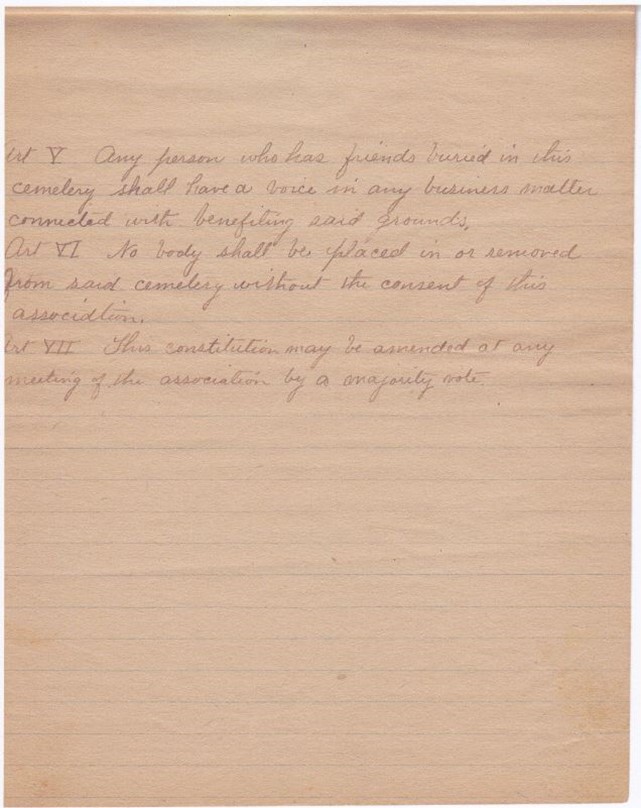 Art V Any person who has friends buried in this
cemetery shall have a voice in any business matter
connected with benefiting said grounds.
Art VI No body shall be placed in or removed
from said cemetery without the consent of this
association.
Art VII This constitution may be amended at any
meeting of the association by a majority vote.